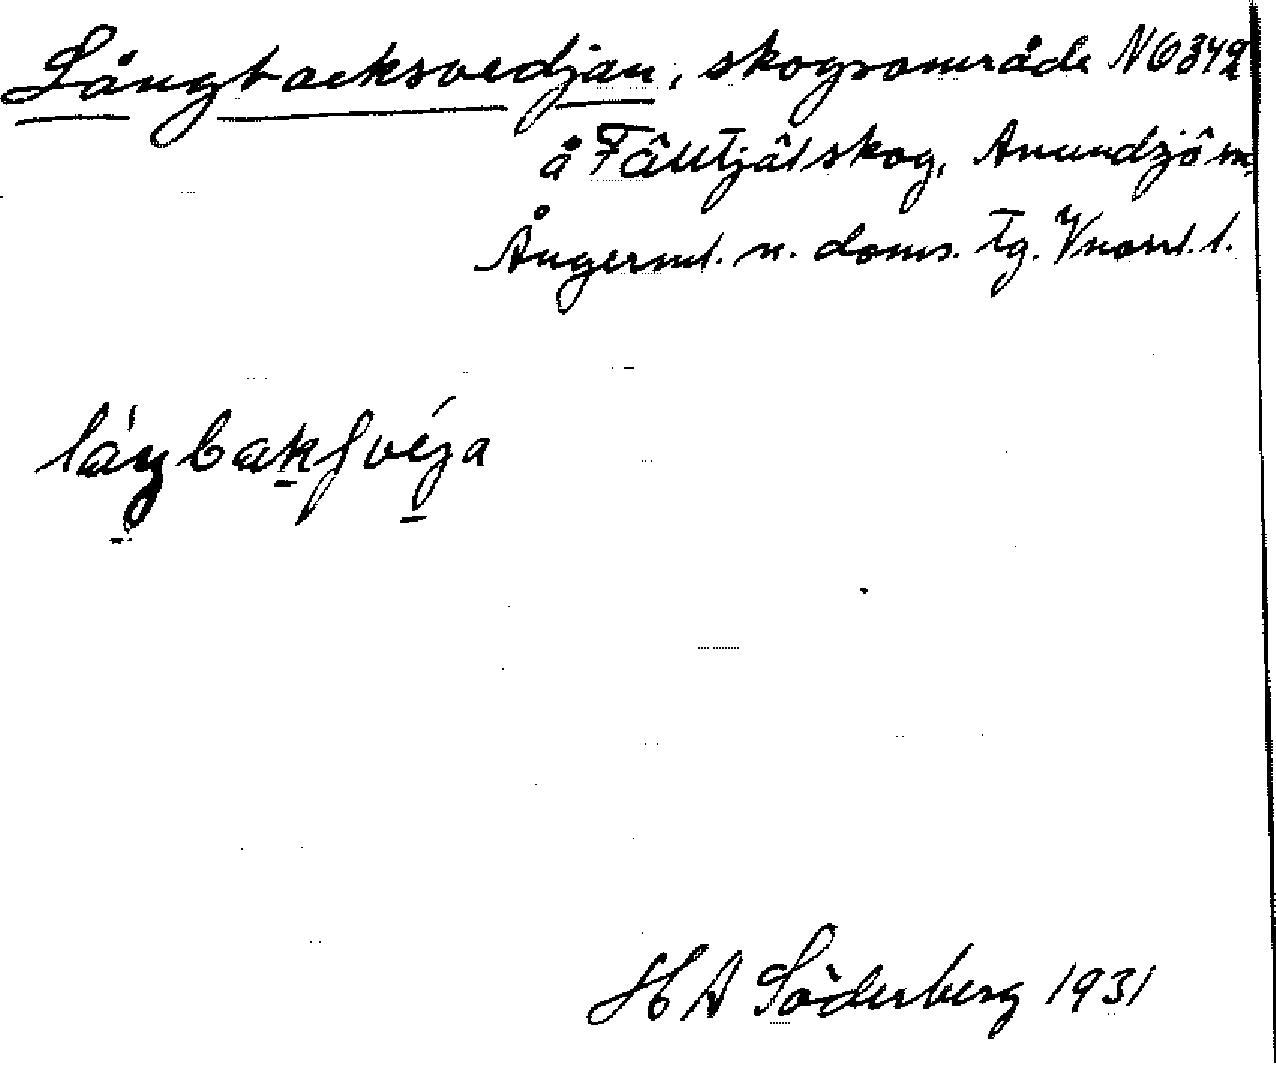 Långbacksvedjan, skogsområde NO 342
å Fälltjäl skog, Anundsjö sn.
Ångerml. n. doms. tg. Vnorrl. l.
H A Söderberg 1931